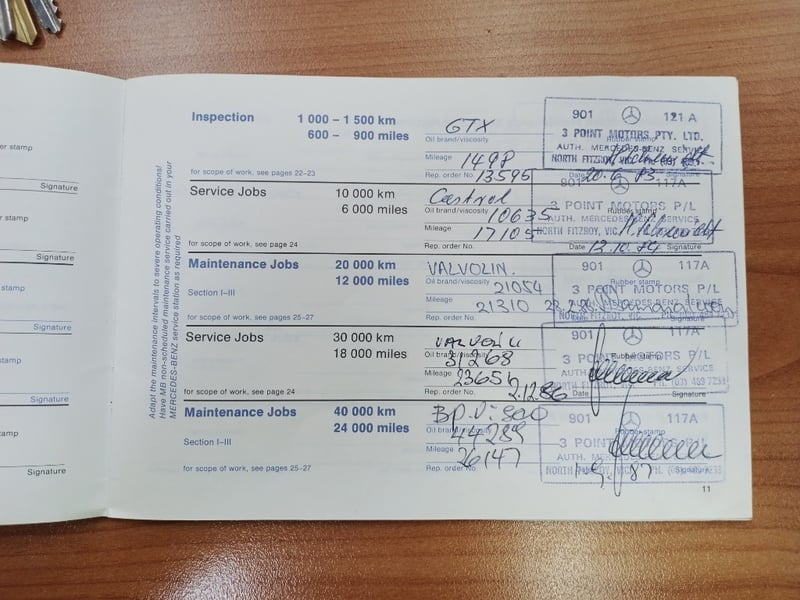 er stamp
Signature
er stamp
Signature
er stamp
Signature
er stamp
Signature
er stamp
Signature
Adapt the maintenance intervals to severe operating conditions!
Have MB non-scheduled maintenance service carried out in your
MERCEDES-BENZ service station as required
Inspection 1 000 – 1 500 km
600 – 900 miles
for scope of work, see pages 22–23
GTX
Oil brand/viscosity
1498
Mileage
13595
Rep. order No.
901 121 A
3 POINT MOTORS PTY. LTD.
AUTH. MERCEDES-BENZ SERVICE
NORTH FITZROY, VIC.
Date 20.6.83
Service Jobs 10 000 km
6 000 miles
for scope of work, see page 24
Castrol
Oil brand/viscosity
10635
Mileage
17105
Rep. order No.
901 117A
3 POINT MOTORS P/L
Rubber stamp
AUTH. MERCEDES-BENZ SERVICE
NORTH FITZROY, VIC.
Date 12.10.84 Signature
Maintenance Jobs 20 000 km
12 000 miles
Section I–III
for scope of work, see pages 25–27
VALVOLIN.
Oil brand/viscosity
21054
Mileage
21310
Rep. order No.
901 117A
Rubber stamp
3 POINT MOTORS P/L
AUTH. MERCEDES-BENZ SERVICE
NORTH FITZROY, VIC.
Service Jobs 30 000 km
18 000 miles
for scope of work, see page 24
Oil brand/viscosity
31268
Mileage
23651
Rep. order No.
901 117A
3 POINT MOTORS P/L
Rubber stamp
AUTH. MERCEDES-BENZ SERVICE
NORTH FITZROY, VIC. PH. (03) 489 7233
2.12.86 Date Signature
Maintenance Jobs 40 000 km
24 000 miles
Section I–III
for scope of work, see pages 25–27
Oil brand/viscosity
44289
Mileage
26147
Rep. order No.
901 117A
Rubber stamp
3 POINT MOTORS P/L
AUTH. MERCEDES-BENZ SERVICE
NORTH FITZROY, VIC. PH. (03) 489 7233
Signature
11